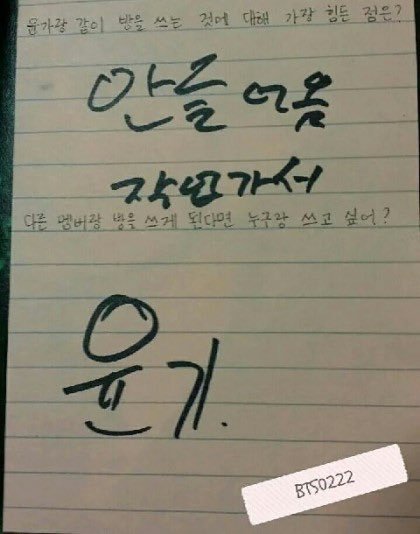 윤기랑 같이 방을 쓰는 것에 대해 가장 힘든 점은?
안들어옴
작업가서
다른 멤버랑 방을 쓰게 된다면 누구랑 쓰고 싶어?
윤기.
BTS0222